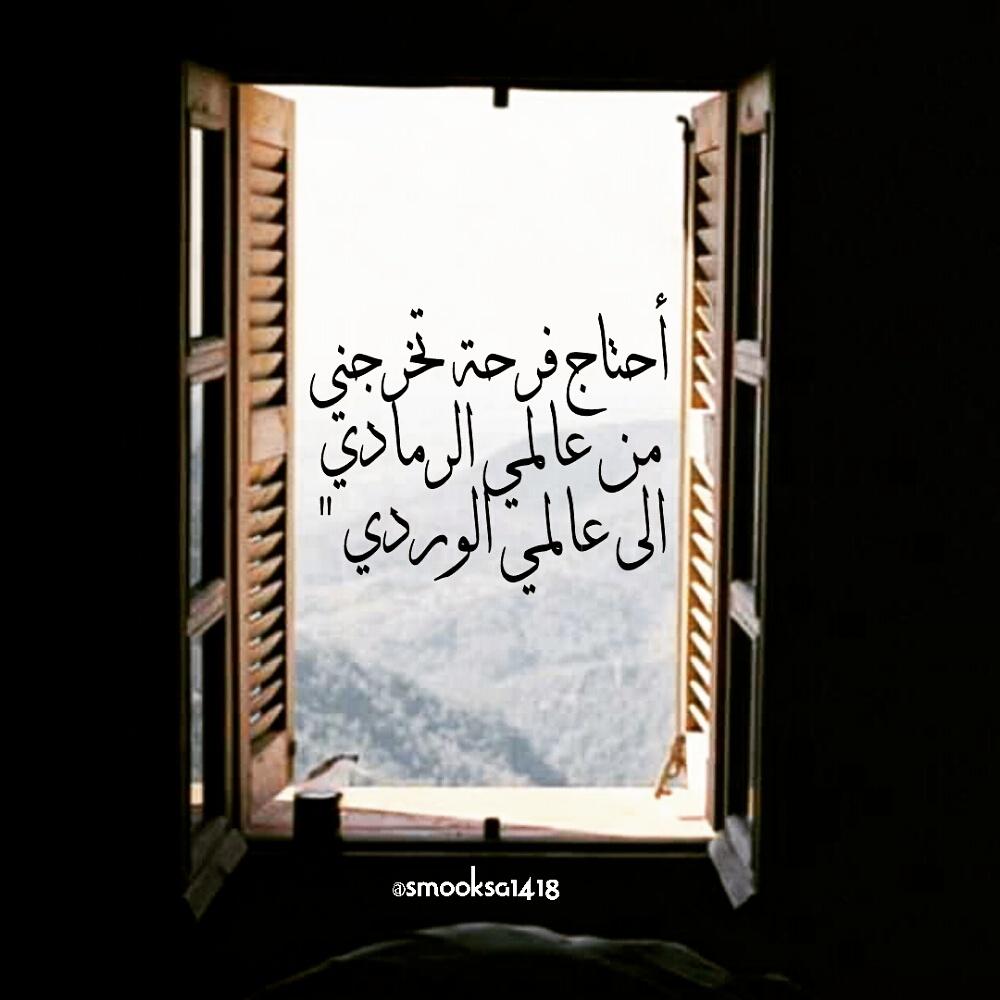 أحتاج فرحة تخرجني
من عالمي الرمادي
الى عالمي الوردي "
@smooksa1418